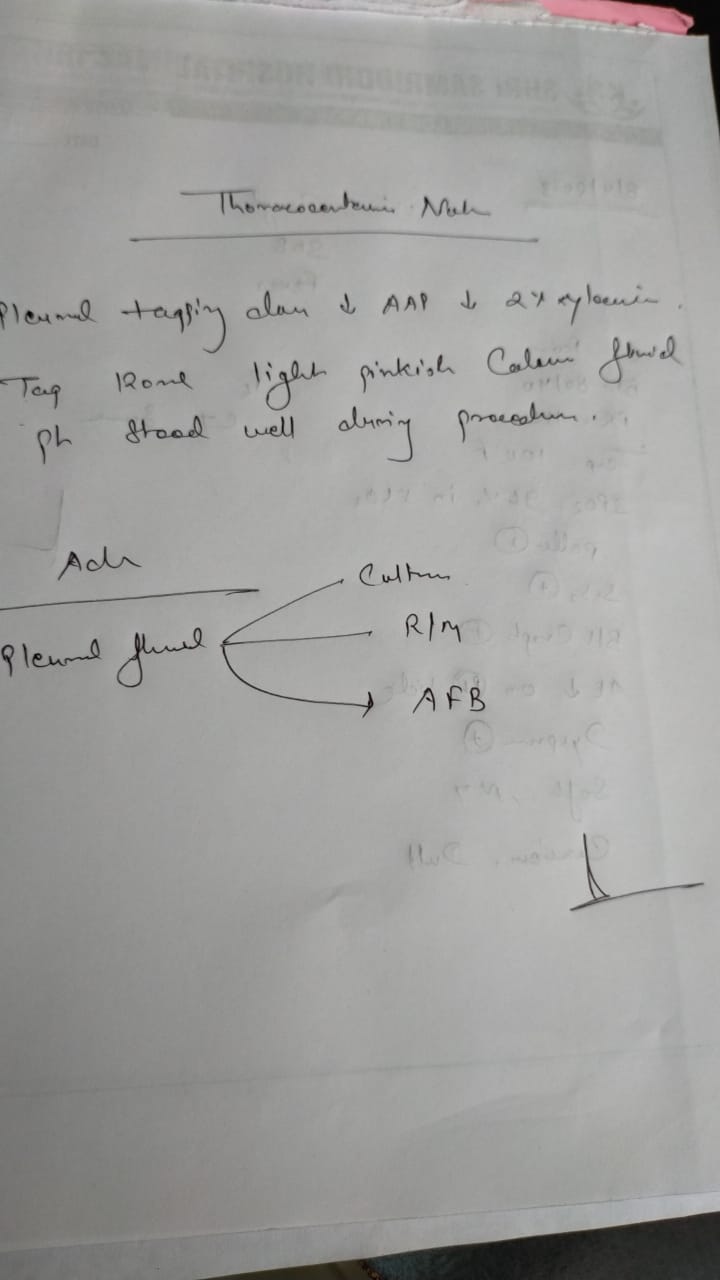 Thoracocentesis Note
Pleural tapping done ↓ AAP ↓ 2% xylocain.
Tap light pinkish Colour fluid
Pt stood well during procedure.
Adv
Pleural fluid
Culture
R/M
AFB